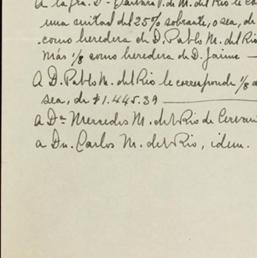 A la Sra. Dª Bárbara P. de M. del Río le co
una mitad del 25% sobrante, o sea, de
como heredera de D. Pablo M. del Río
Más 1/8 como heredera de D. Jaime —
A D. Pablo M. del Río le corresponde 1/8 o
sea, de $1.445.39
a Dª Mercedes M. del Río de Cervan
a Dn. Carlos M. del Río, idem.